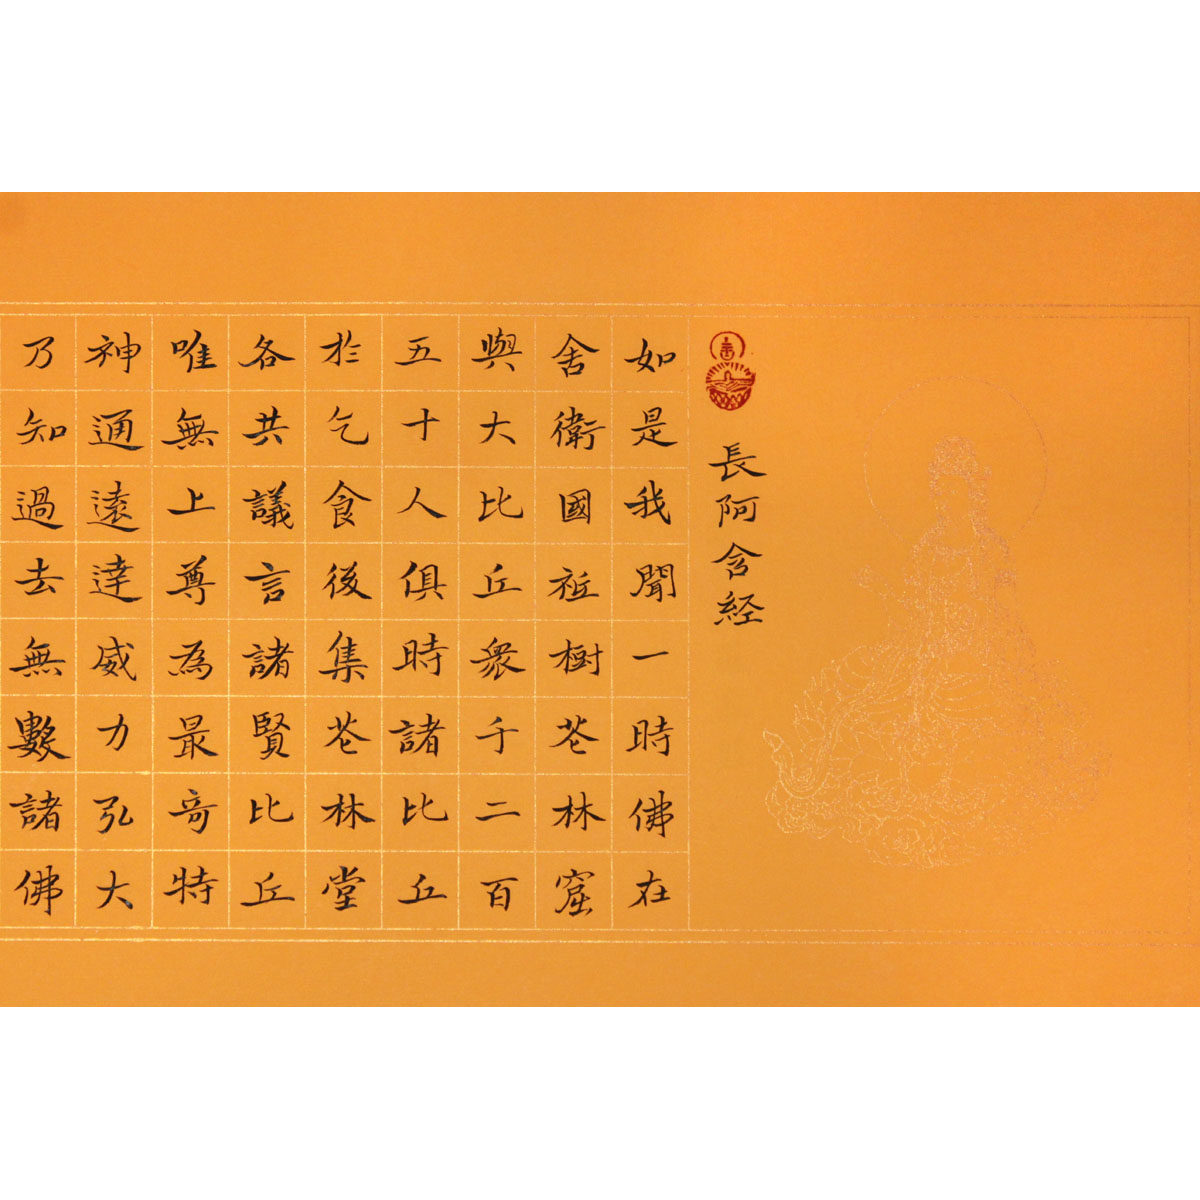 長阿含経
如是我聞一時佛在
舍衛國祇樹花林窟
與大比丘衆千二百
五十人俱時諸比丘
於乞食後集花林堂
各共議言諸賢比丘
唯無上尊為最奇特
神通遠達威力弘大
乃知過去無數諸佛